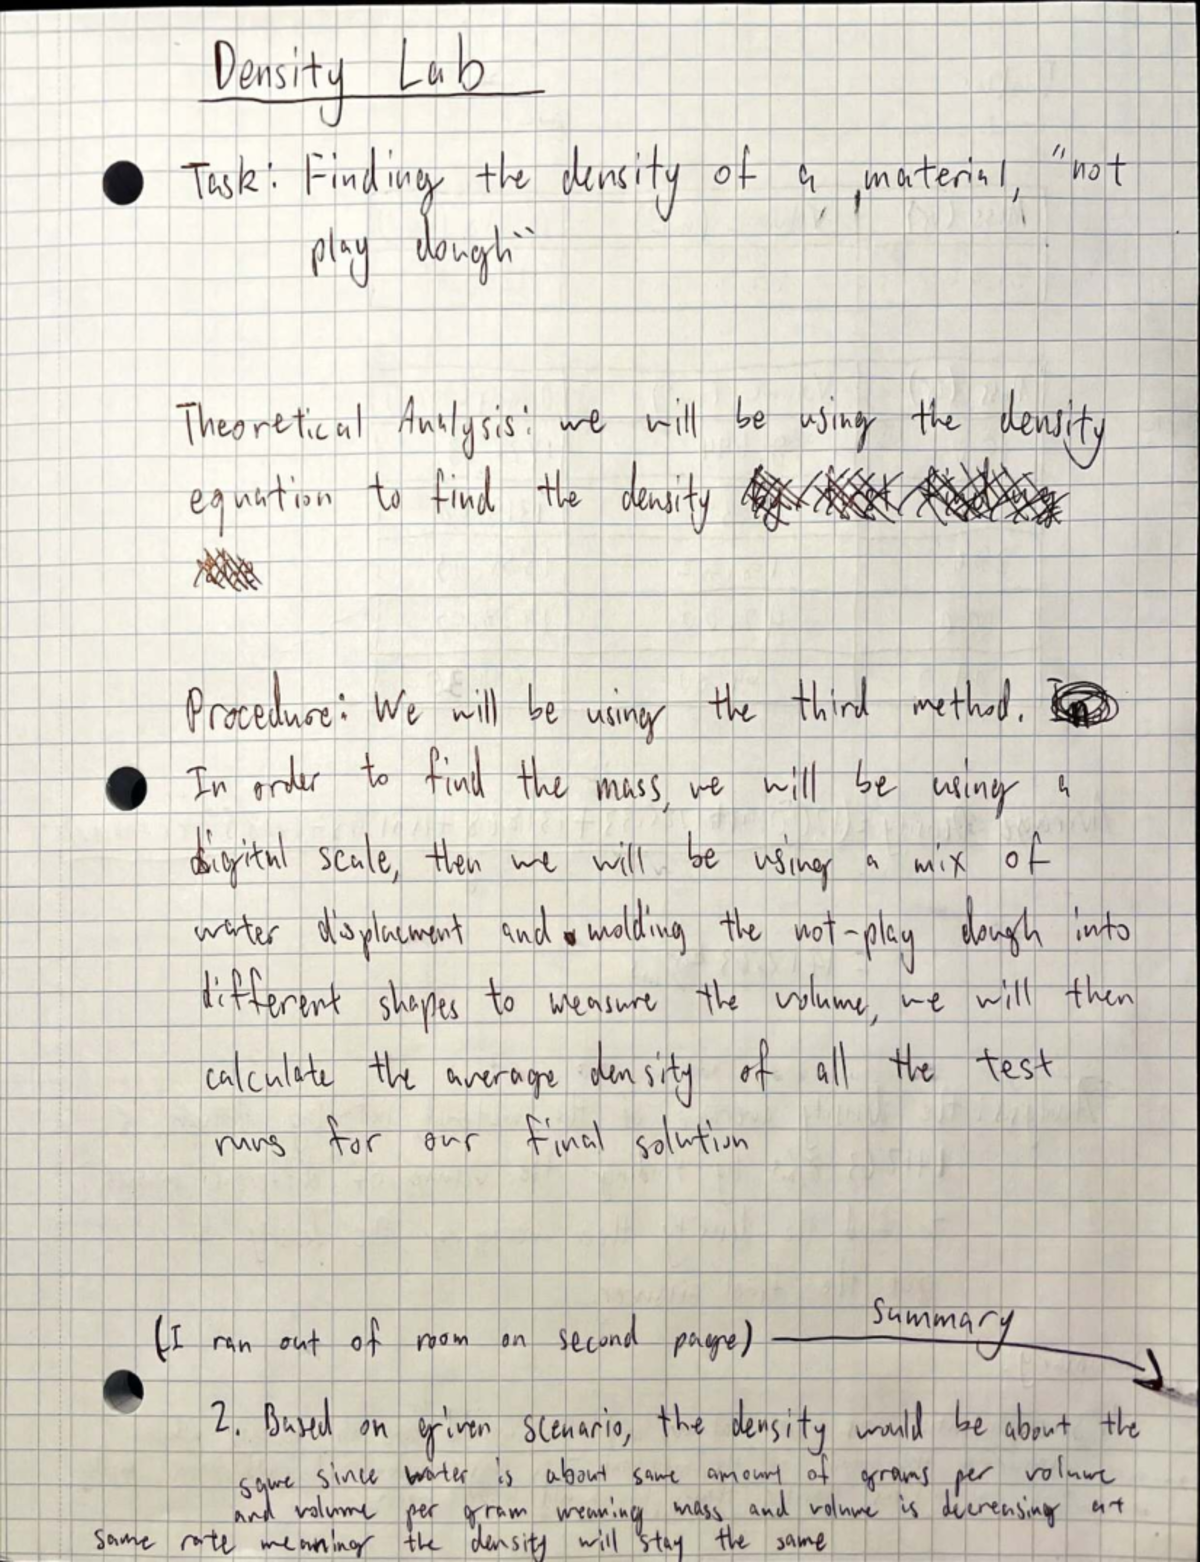 Density Lab
Task: Finding the density of a material, "not
play dough"
Theoretical Analysis: we will be using the density
equation to find the density
Procedure: We will be using the third method.
In order to find the mass, we will be using a
digital scale, then we will be using a mix of
water displacment and molding the not-play dough into
different shapes to measure the volume, we will then
calculate the average density of all the test
runs for our final solution
Summary
(I ran out of room on second page)
2. Based on given scenario, the density would be about the
same since water is about same amount of grams per volume
and volume per gram meaning mass and volume is decreasing at
same rate meaning the density will stay the same